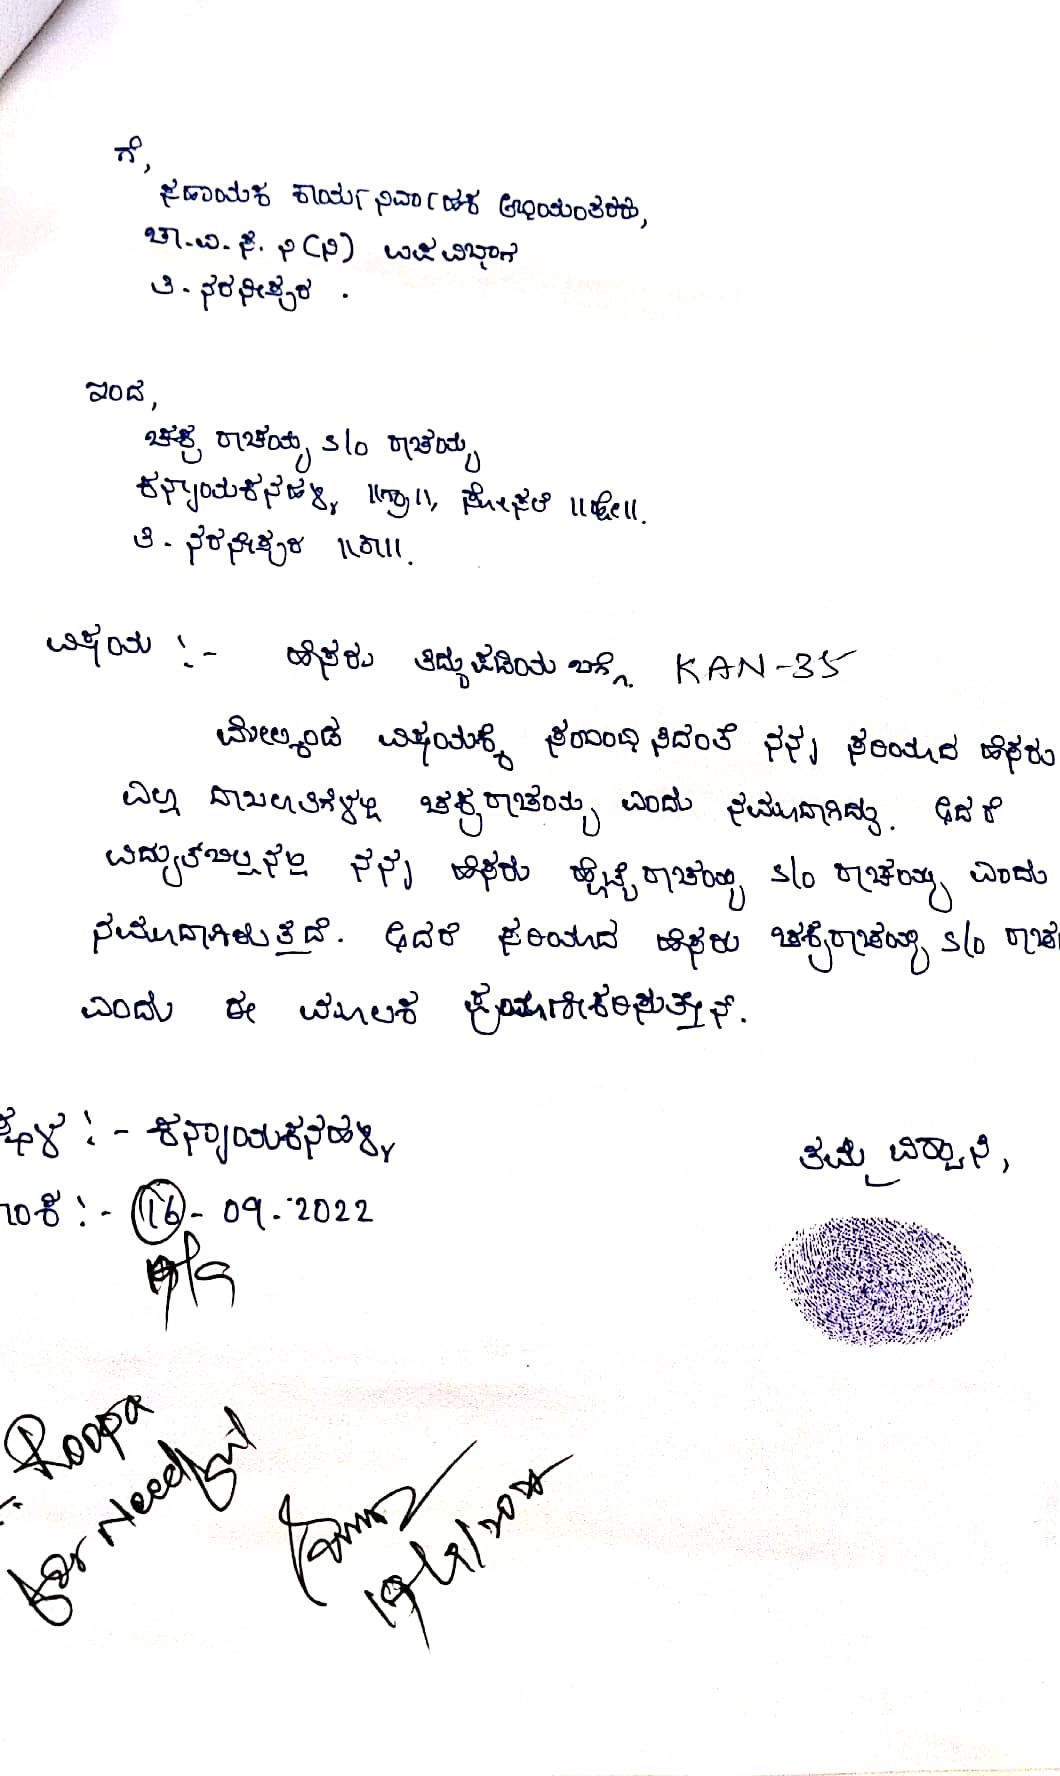 ಗೆ,
ಸಹಾಯಕ ಕಾರ್ಯನಿರ್ವಾಹಕ ಅಭಿಯಂತರರು,
ಚಾ.ವಿ.ಸ.ನಿ(ನಿ) ಉಪವಿಭಾಗ
ತಿ. ನರಸೀಪುರ .
ಇಂದ,
ಚಿಕ್ಕ ರಾಚಯ್ಯ S/o ರಾಚಯ್ಯ
ಕನ್ನಾಯಕನಹಳ್ಳಿ ||ಗ್ರಾ||, ಸೋಸಲೆ ||ಹೋ||.
ತಿ. ನರಸೀಪುರ ||ತಾ||.
ವಿಷಯ :- ಹೆಸರು ತಿದ್ದುಪಡಿಯ ಬಗ್ಗೆ. KAN-35
ಮೇಲ್ಕಂಡ ವಿಷಯಕ್ಕೆ ಸಂಬಂಧಿಸಿದಂತೆ ನನ್ನ ಸರಿಯಾದ ಹೆಸರು
ಎಲ್ಲಾ ದಾಖಲಾತಿಗಳಲ್ಲಿ ಚಿಕ್ಕರಾಚಯ್ಯ ಎಂದು ನಮೂದಾಗಿದ್ದು. ಆದರೆ
ವಿದ್ಯುತ್‌ಬಿಲ್ಲಿನಲ್ಲಿ ನನ್ನ ಹೆಸರು ರಾಚಯ್ಯ S/o ರಾಚಯ್ಯ ಎಂದು
ನಮೂದಾಗಿರುತ್ತದೆ. ಆದರೆ ಸರಿಯಾದ ಹೆಸರು ಚಿಕ್ಕರಾಚಯ್ಯ S/o ರಾಚ
ಎಂದು ಈ ಮೂಲಕ ಪ್ರಮಾಣೀಕರಿಸುತ್ತೇನೆ.
ಸ್ಥಳ :- ಕನ್ನಾಯಕನಹಳ್ಳಿ
ಾಂಕ :- 16-09-2022
ತಮ್ಮ ವಿಶ್ವಾಸಿ,
Roopa
Needful